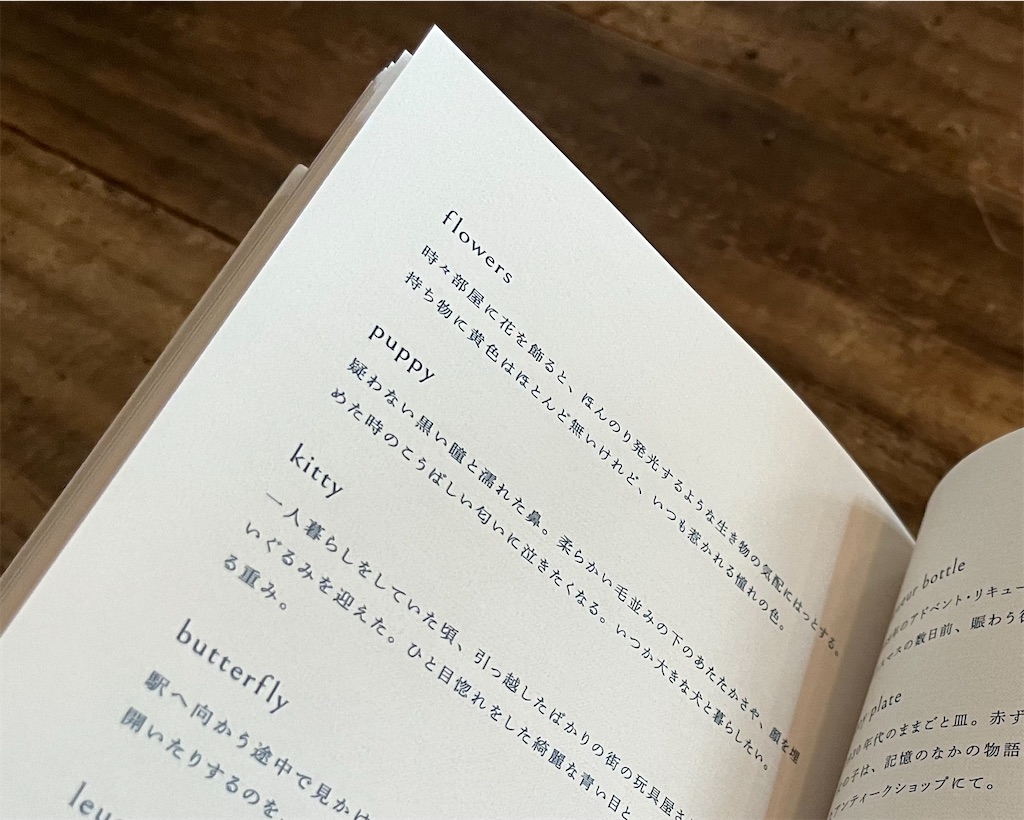 flowers
時々部屋に花を飾ると、ほんのり発光するような生き物の気配にはっとする。
持ち物に黄色はほとんど無いけれど、いつも惹かれる憧れの色。
puppy
疑わない黒い瞳と濡れた鼻。柔らかい毛並みの下のあたたかさや、顔を埋
めた時のこうばしい匂いに泣きたくなる。いつか大きな犬と暮らしたい。
kitty
一人暮らしをしていた頃、引っ越したばかりの街の玩具屋さ
いぐるみを迎えた。ひと目惚れをした綺麗な青い目と
る重み。
butterfly
駅へ向かう途中で見かけ
開いたりするのを
bottle
年のアドベント・リキュー
マスの数日前、賑わう
plate
年代のままごと皿。赤ず
の子は、記憶のなかの物語
アンティークショップにて。